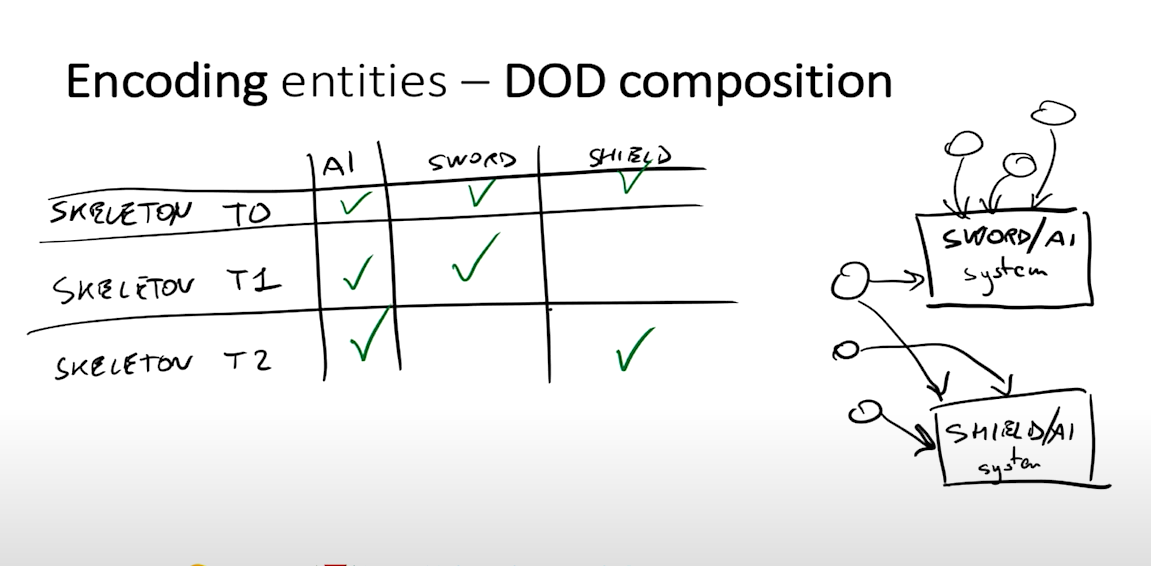 Encoding entities – DOD composition
AI SWORD SHIELD
SKELETON T0
SKELETON T1
SKELETON T2
SWORD/AI
system
SHIELD/AI
system